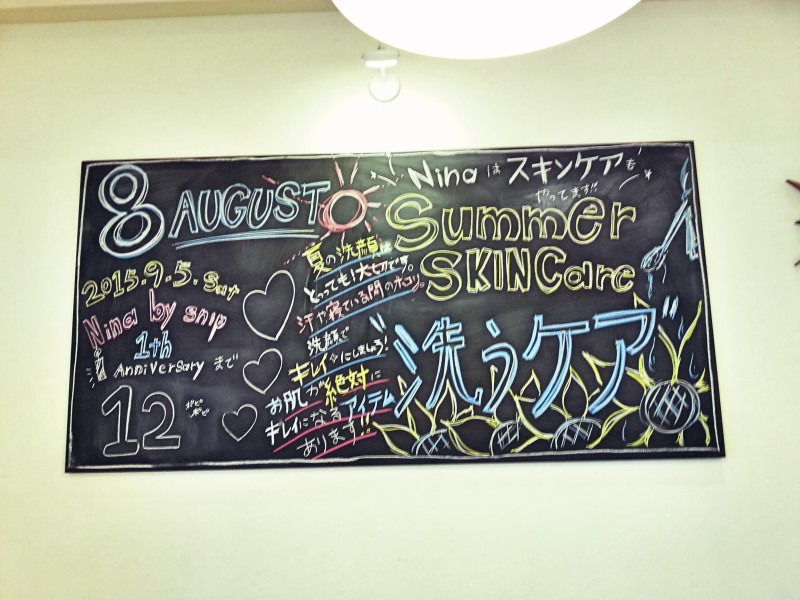 8 AUGUST
2015.9.5.Sat
Nina by snip
1th
Anniversary まで
12
夏の洗顔は
とっても!大切です。
汗や寝ている間のホコリ。
洗顔で
キレイにしましょう!
お肌が絶対に
キレイになるアイテム
あります!!
Nina は スキンケアも
やってます!!
Summer
SKIN Care
"洗うケア"